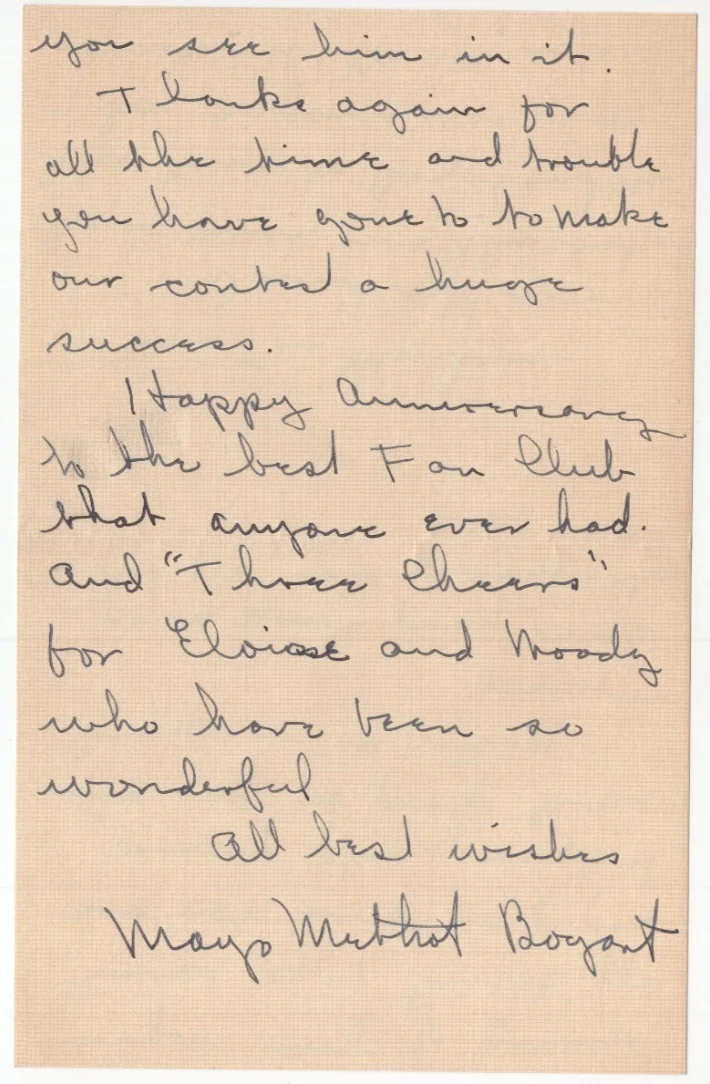 you see him in it.
Thanks again for
all the time and trouble
you have gone to to make
our contest a huge
success.
Happy Anniversary
to the best Fan Club
that anyone ever had.
And "Three Cheers"
for Eloise and Woody
who have been so
wonderful
All best wishes
Mayo Methot Bogart